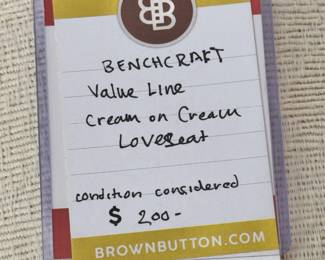 BB
BENCHCRAFT
Value Line
Cream on Cream
Loveseat
condition considered
$ 200-
BROWNBUTTON.COM